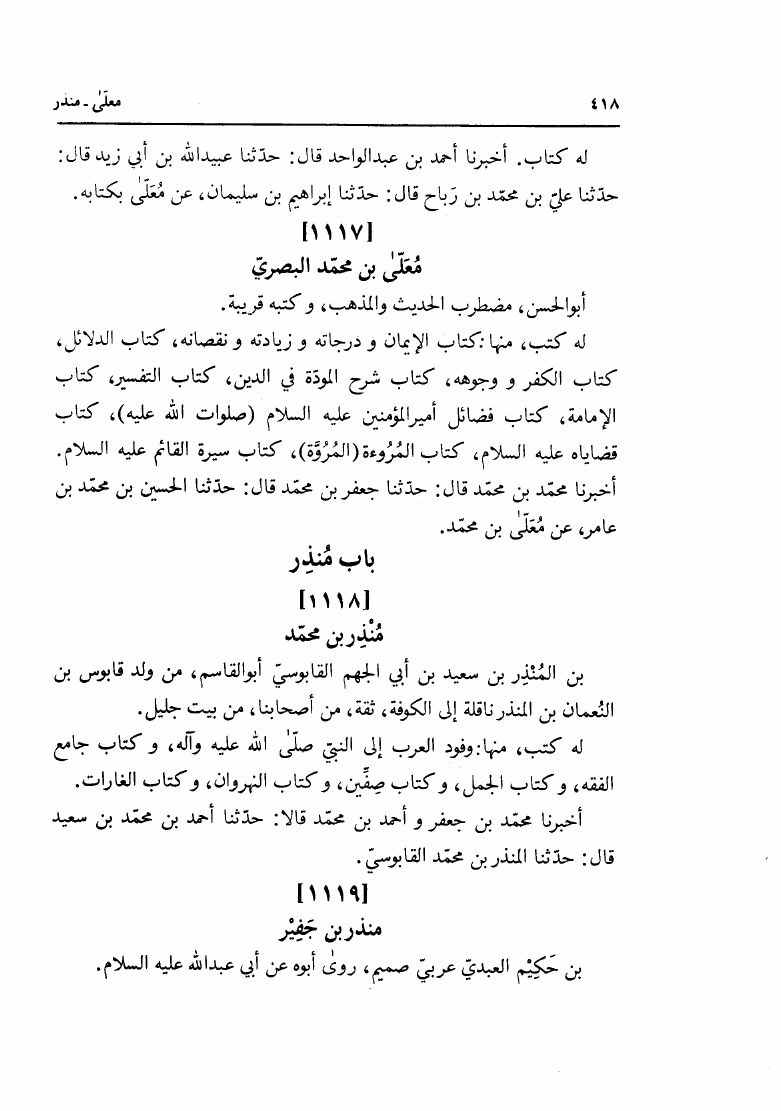 ٤١٨ معلّىٰ ـ منذر
له كتاب. أخبرنا أحمد بن عبدالواحد قال: حدّثنا عبيدالله بن أبي زيد قال:
حدّثنا عليّ بن محمّد بن رَباح قال: حدّثنا إبراهيم بن سليمان، عن مُعَلّىٰ بكتابه.
[١١١٧]
مُعَلّىٰ بن محمّد البصريّ
أبوالحسن، مضطرب الحديث والمذهب، و كتبه قريبة.
له كتب، منها: كتاب الإيمان و درجاته و زيادته و نقصانه، كتاب الدلائل،
كتاب الكفر و وجوهه، كتاب شرح المودّة في الدين، كتاب التفسير، كتاب
الإمامة، كتاب فضائل أميرالمؤمنين عليه السلام (صلوات الله عليه)، كتاب
قضاياه عليه السلام، كتاب المُرُوءة (المُرُوَّة)، كتاب سيرة القائم عليه السلام.
أخبرنا محمّد بن محمّد قال: حدّثنا جعفر بن محمّد قال: حدّثنا الحسين بن محمّد بن
عامر، عن مُعَلّىٰ بن محمّد.
باب مُنذِر
[١١١٨]
مُنْذِر بن محمّد
بن المُنْذِر بن سعيد بن أبي الجهم القابوسيّ أبوالقاسم، من ولد قابوس بن
النُعمان بن المنذر ناقلة إلى الكوفة، ثقة، من أصحابنا، من بيت جليل.
له كتب، منها: وفود العرب إلى النبيّ صلّىٰ الله عليه وآله، و كتاب جامع
الفقه، و كتاب الجمل، و كتاب صِفِّين، و كتاب النهروان، و كتاب الغارات.
أخبرنا محمّد بن جعفر و أحمد بن محمّد قالا: حدّثنا أحمد بن محمّد بن سعيد
قال: حدّثنا المنذر بن محمّد القابوسيّ.
[١١١٩]
منذر بن جَفِيْر
بن حَكِيْم العبديّ عربيّ صميم، روىٰ أبوه عن أبي عبدالله عليه السلام.